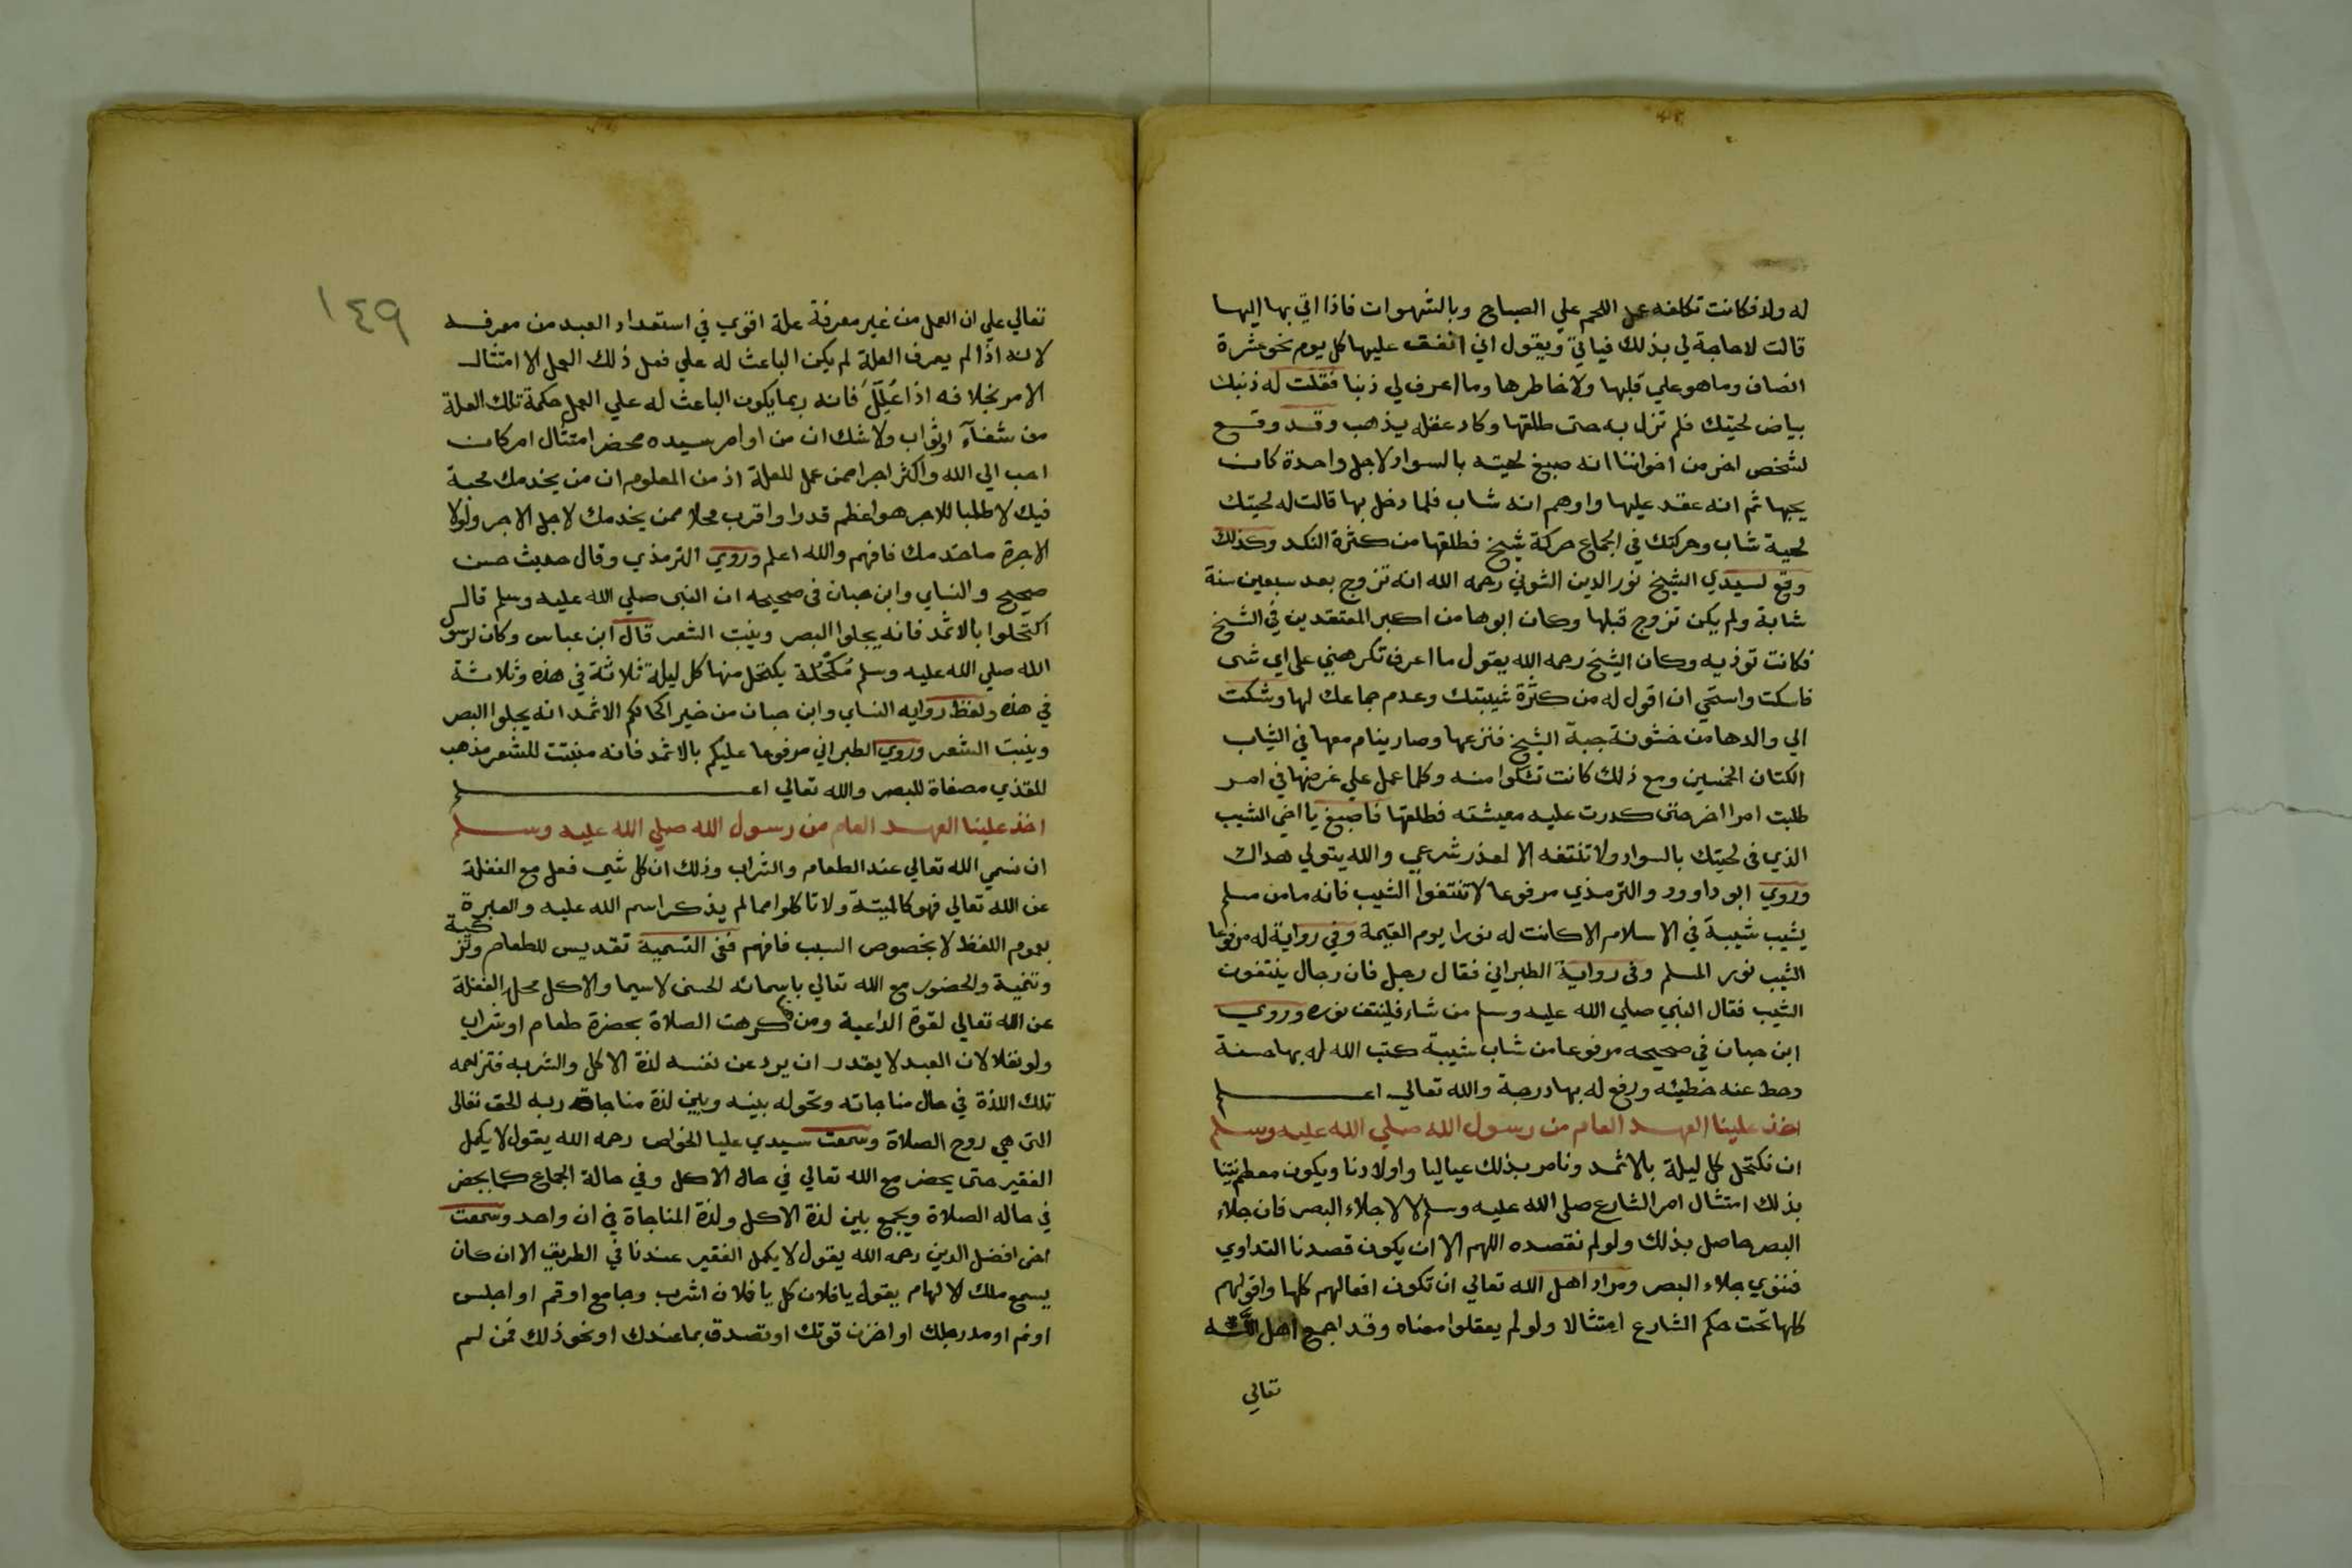 له ولد فكانت تكلفه عمل اللحم علي الصباج وبالشهوات فاذا اتي بها اليها
قالت لا حاجة لي بذلك فياتي ويقول اني انفق عليها كل يوم نحو عشرة
انصاف وما هو علي قلبها ولا خاطرها وما اعرف لي ذنبا فقلت له ذنبك
بياض لحيتك فلم تزل به حتى طلقها وكاد عقله يذهب وقد وقع
لشخص اخر من اخواننا انه صبغ لحيته بالسواد لاجل واحدة كان
يحبها ثم انه عقد عليها واوهم انه شاب فلما دخل بها قالت له لحيتك
لحية شاب وحركتك في الجماع حركة شيخ فطلقها من كثرة النكد وكذلك
وقع لسيدي الشيخ نور الدين الشوني رحمه الله انه تزوج بعد سبعين سنة
شابة ولم يكن تزوج قبلها وكان ابوها من اكبر المعتقدين في الشيخ
فكانت توذيه وكان الشيخ رحمه الله يقول ما اعرف تكرهني على اي شى
فاسكت واستحي ان اقول له من كثرة شيبتك وعدم جماعك لها وشكت
الى والدها من خشونة جبة الشيخ فنزعها وصار ينام معها في الثياب
الكتان الخمسين ومع ذلك كانت تشكوا منه وكلما عمل علي غرضها في امر
طلبت امرا اخر حتى كدرت عليه معيشته فطلقها فاصبغ يا اخي الشيب
الذي في لحيتك بالسواد ولا تنتفه الا لعذر شرعي والله يتولي هداك
وروي ابو داوود والترمذي مرفوعا لا تنتفوا الشيب فانه ما من مسلم
يشيب شيبة في الاسلام الا كانت له نورا يوم القيمة وفي رواية له مرفوعا
الشيب نور المسلم وفى رواية الطبراني فقال رجل فان رجال ينتفون
الشيب فقال النبي صلي الله عليه وسلم من شاء فلينتف نوره وروي
ابن حبان في صحيحه مرفوعا من شاب شيبة كتب الله له بها حسنة
وحط عنه خطيئه ورفع له بها درجة والله تعالي اعلم
اخذ علينا العهد العام من رسول الله صلي الله عليه وسلم
ان نكتحل كل ليلة بالاثمد ونامر بذلك عيالنا واولادنا ويكون معظم نيتنا
بذلك امتثال امر الشارع صلى الله عليه وسلم لا لاجلاء البصر فان جلاء
البصر حاصل بذلك ولو لم نقصده اللهم الا ان يكون قصدنا التداوي
فننوي جلاء البصر ومراد اهل الله تعالي ان تكون افعالهم كلها واقولهم
كلها تحت حكم الشارع امتثالا ولو لم يعقلوا معناه وقد اجمع اهل الله
تعالي
١٤٩
تعالي علي ان العمل من غير معرفة علة اقوي في استعداد العبد من معرفــه
لانه اذا لم يعرف العلة لم يكن الباعث له علي فعل ذلك العمل الا امتثال
الامر بخلافه اذا عُلِّلَ فانه ربما يكون الباعث له علي العمل حكمة تلك العلة
من شفآء اوثواب ولا شك ان من اوامر سيده محض امتثال امر كان
احب الي الله واكثر اجرا ممن عمل للعلة اذ من المعلوم ان من يخدمك محبة
فيك لا طلبا للاجر هو اعظم قدرا واقرب محلا ممن يخدمك لاجل الاجر ولولا
الاجرة ما خدمك فافهم والله اعلم وروي الترمذي وقال حديث حسن
صحيح والنساي وابن حبان في صحيحه ان النبى صلي الله عليه وسلم قال
اكتحلوا بالاثمد فانه يجلوا البصر وينبت الشعر قال ابن عباس وكان لرسول
الله صلي الله عليه وسلم مُكْحُلة يكتحل منها كل ليلة ثلاثة في هذه وثلاثة
في هذه ولفظ روايه النساي وابن حبان من خير اكحالكم الاثمد انه يجلوا البصر
وينبت الشعر وروي الطبراني مرفوعا عليكم بالاثمد فانه منبتت للشعر مذهب
للقذي مصفاة للبصر والله تعالي اعلم
اخذ علينا العهد العام من رسول الله صلي الله عليه وسلم
ان نسمي الله تعالي عند الطعام والشراب وذلك ان كل شي فعل مع الغفلة
عن الله تعالي فهو كالميتة ولا تاكلوا مما لم يذكر اسم الله عليه والعبرة
بعموم اللفظ لا بخصوص السبب فافهم ففى التسمية تقديس للطعام وتزكية
وتنمية والحضور مع الله تعالي باسمائه الحسنى لاسيما والاكل محل الغفلة
عن الله تعالي لقوة الداعية ومن كرهت الصلاة بحضرة طعام اوشراب
ولو نفلا لان العبد لا يقدر ان يرد عن نفسه لذة الاكل والشربه فتزاحمه
تلك اللذة في حال مناجاته وتحوله بينه وبين لذة مناجاة ربه الحق تعالى
التى هي روح الصلاة وسمعت سيدي عليا الخواص رحمه الله يقول لا يكمل
الفقير حتى يحضر مع الله تعالي في حال الاكل وفي حالة الجماع كما يحضر
في حاله الصلاة ويجمع بين لذة الاكل ولذة المناجاة في ان واحد وسمعت
اخى افضل الدين رحمه الله يقول لا يكمل الفقير عندنا في الطريق الا ان كان
يسمع ملك الالهام يقول يا فلان كل يا فلان اشرب وجامع اوقم او اجلس
اونم اومد رجلك او اخزن قوتك اوتصدق بما عندك اونحو ذلك فمن لم